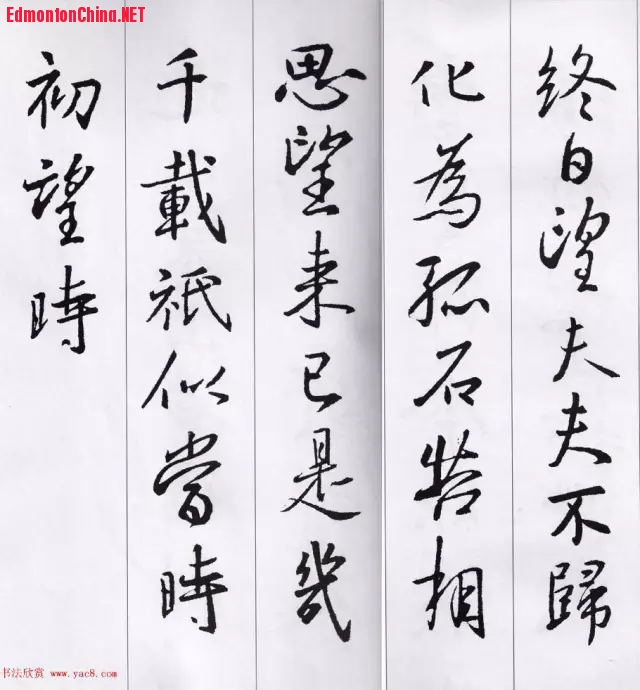 EdmontonChina.NET
终日望夫夫不歸
化為孤石苦相
思望来已是幾
千載衹似當時
初望時
书法欣赏 www.yac8.com